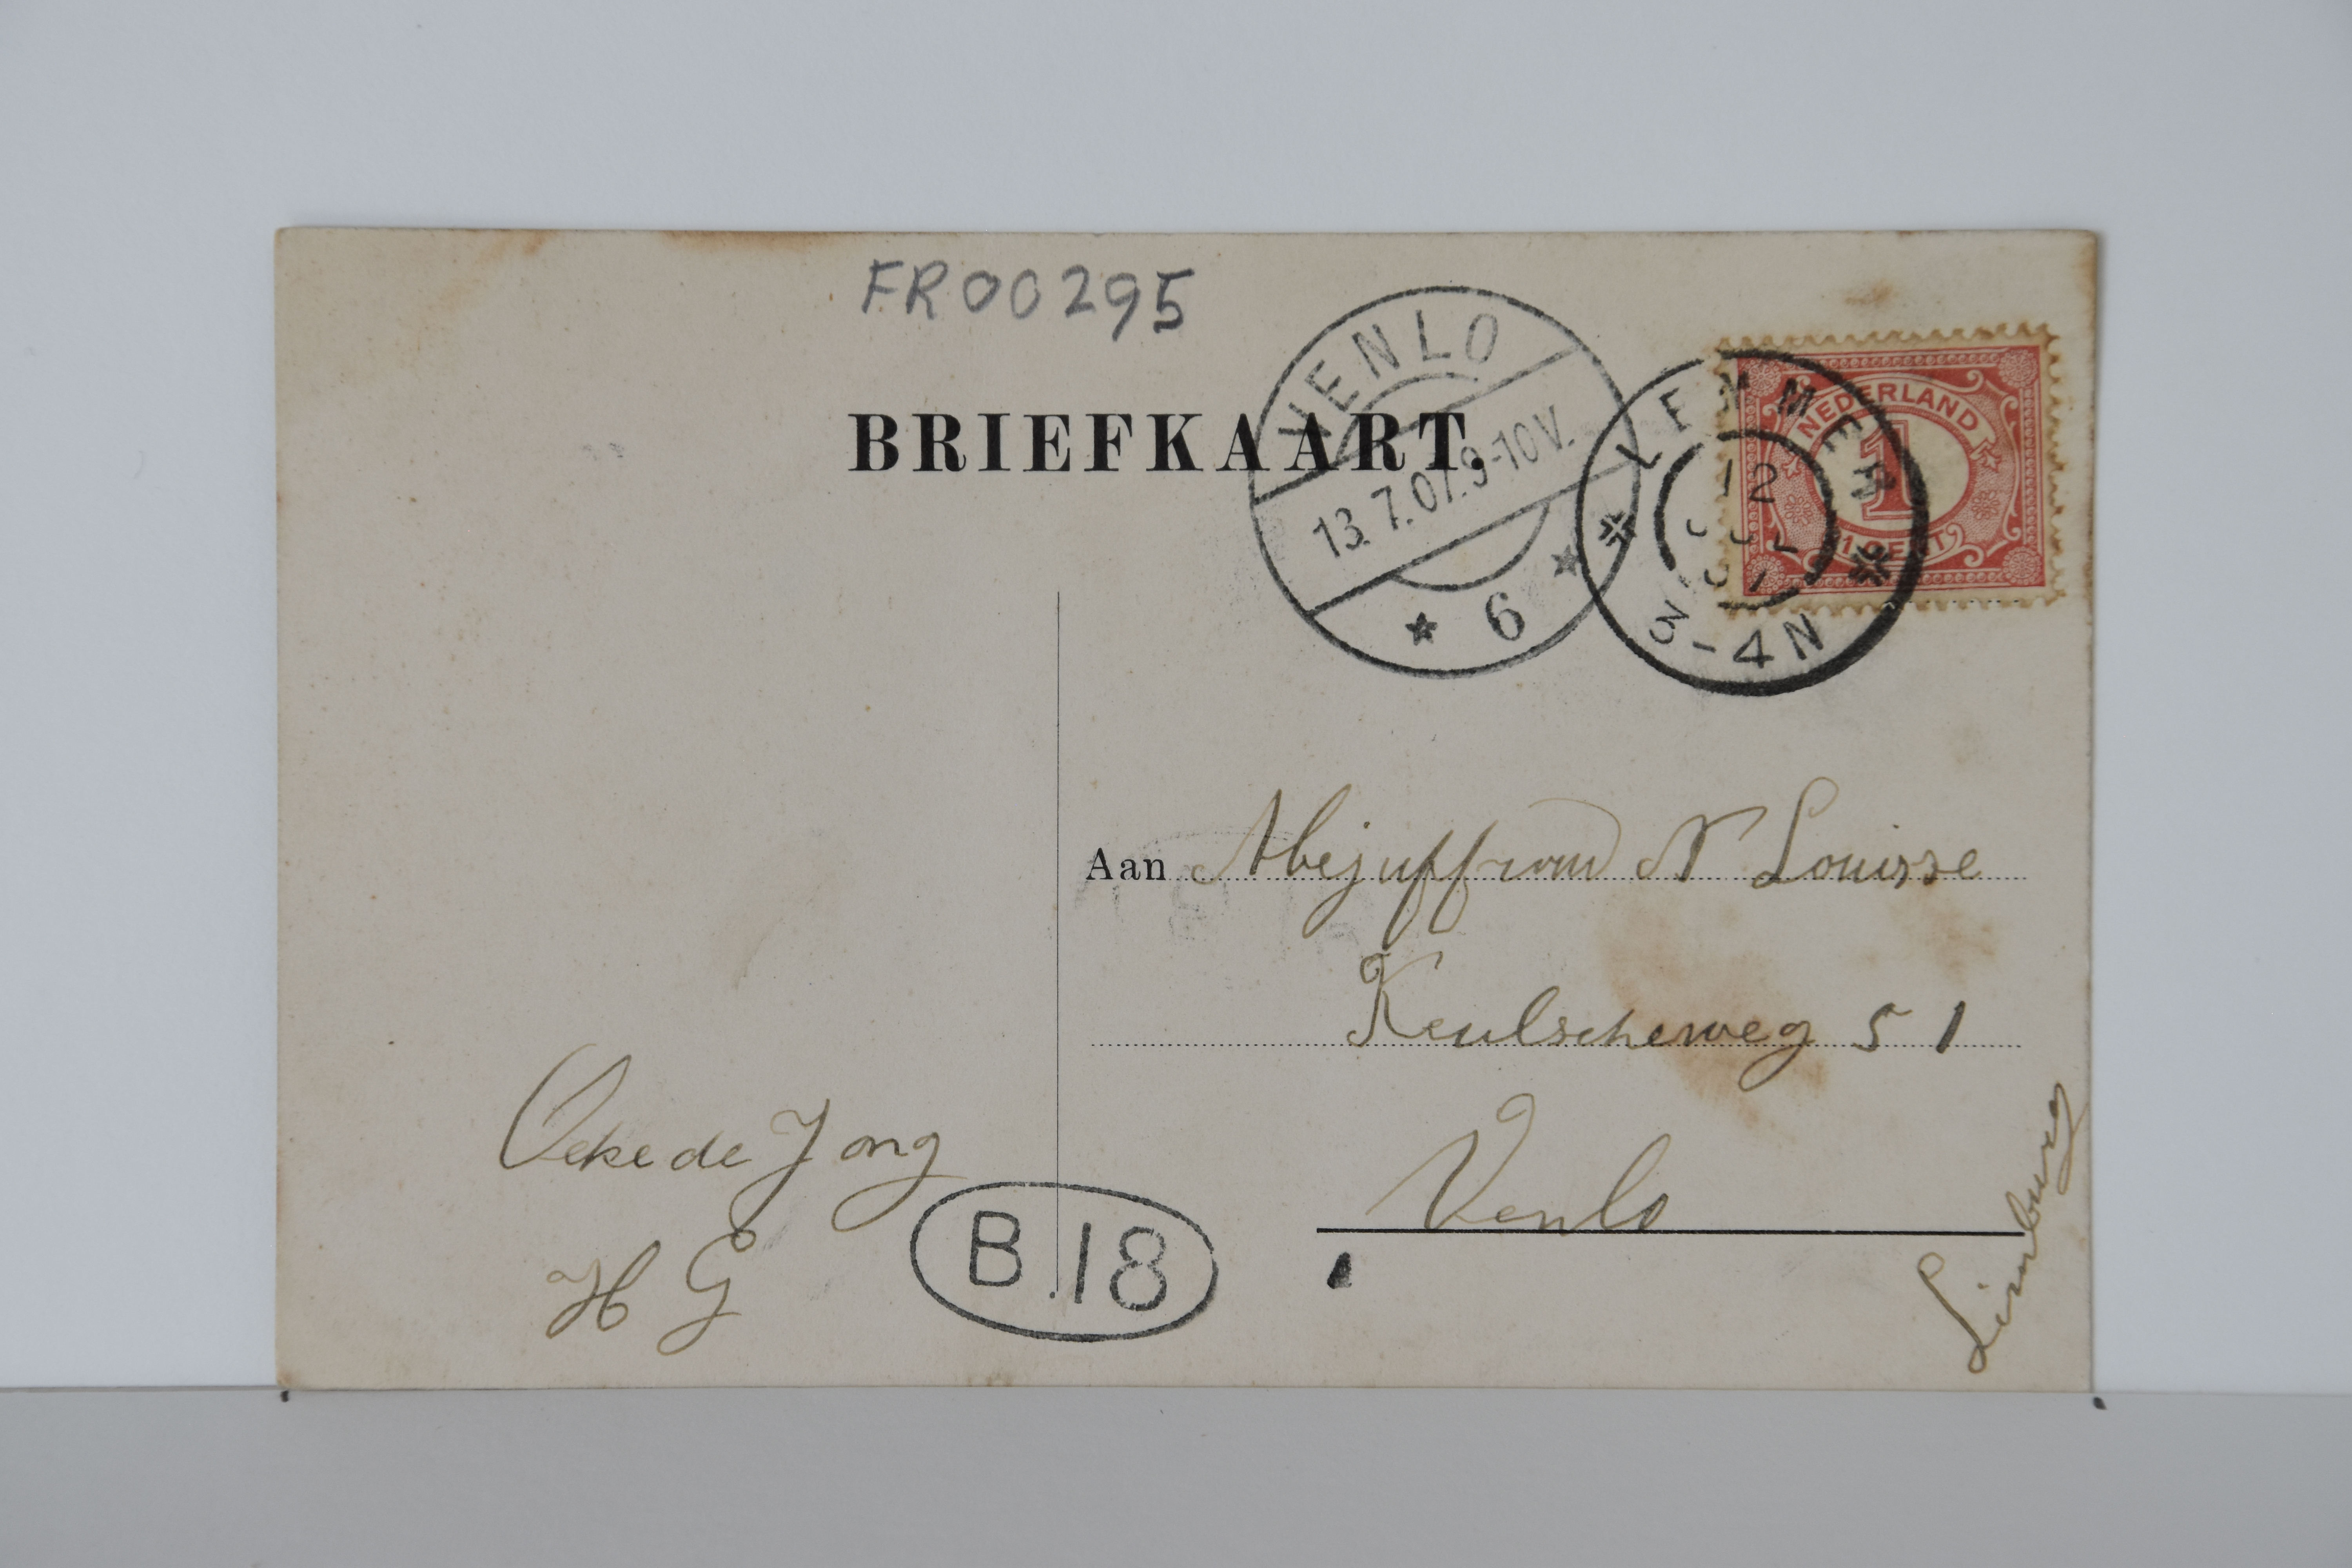 FR00295
BRIEFKAART.
VENLO
13.7.07.9-10V.
6
LEMMER
12
JUL
07
3-4N
NEDERLAND
1
1 CENT
Aan Mejuffrouw N Louisse
Keulscheweg 51
Venlo
Limburg
de Jong
H G
B.18